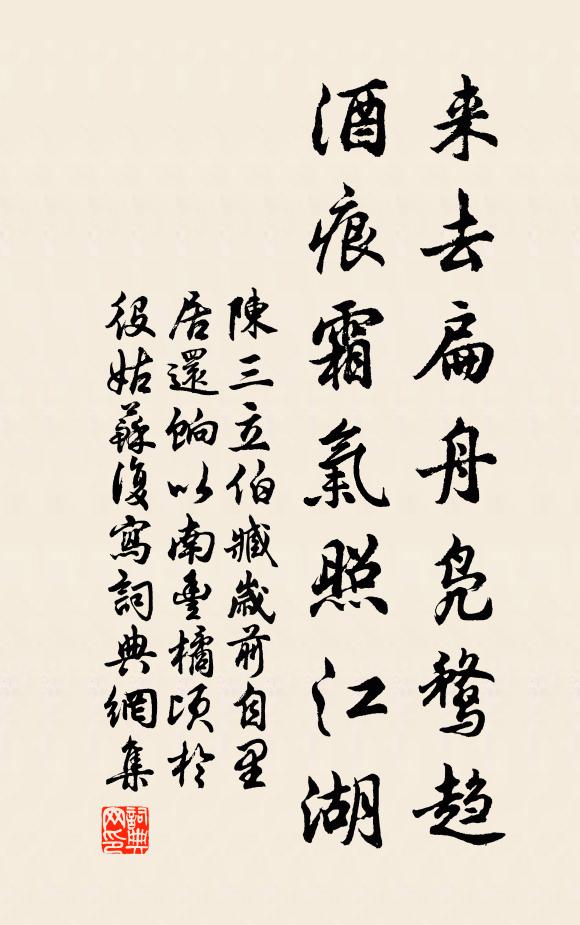 来去扁舟凫鹜趋
酒痕霜氣照江湖
陳三立伯臧歲前自里
居還餉以南豐橘頃於
役姑蘇復寫詞典網集
詞典网印